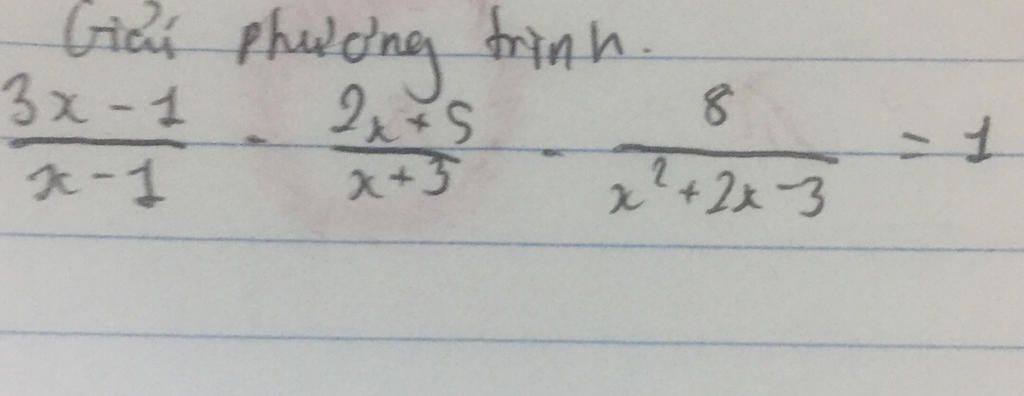 Giải phương trình.
(3x - 1)/(x - 1) - (2x + 5)/(x + 3) - 8/(x² + 2x - 3) = 1